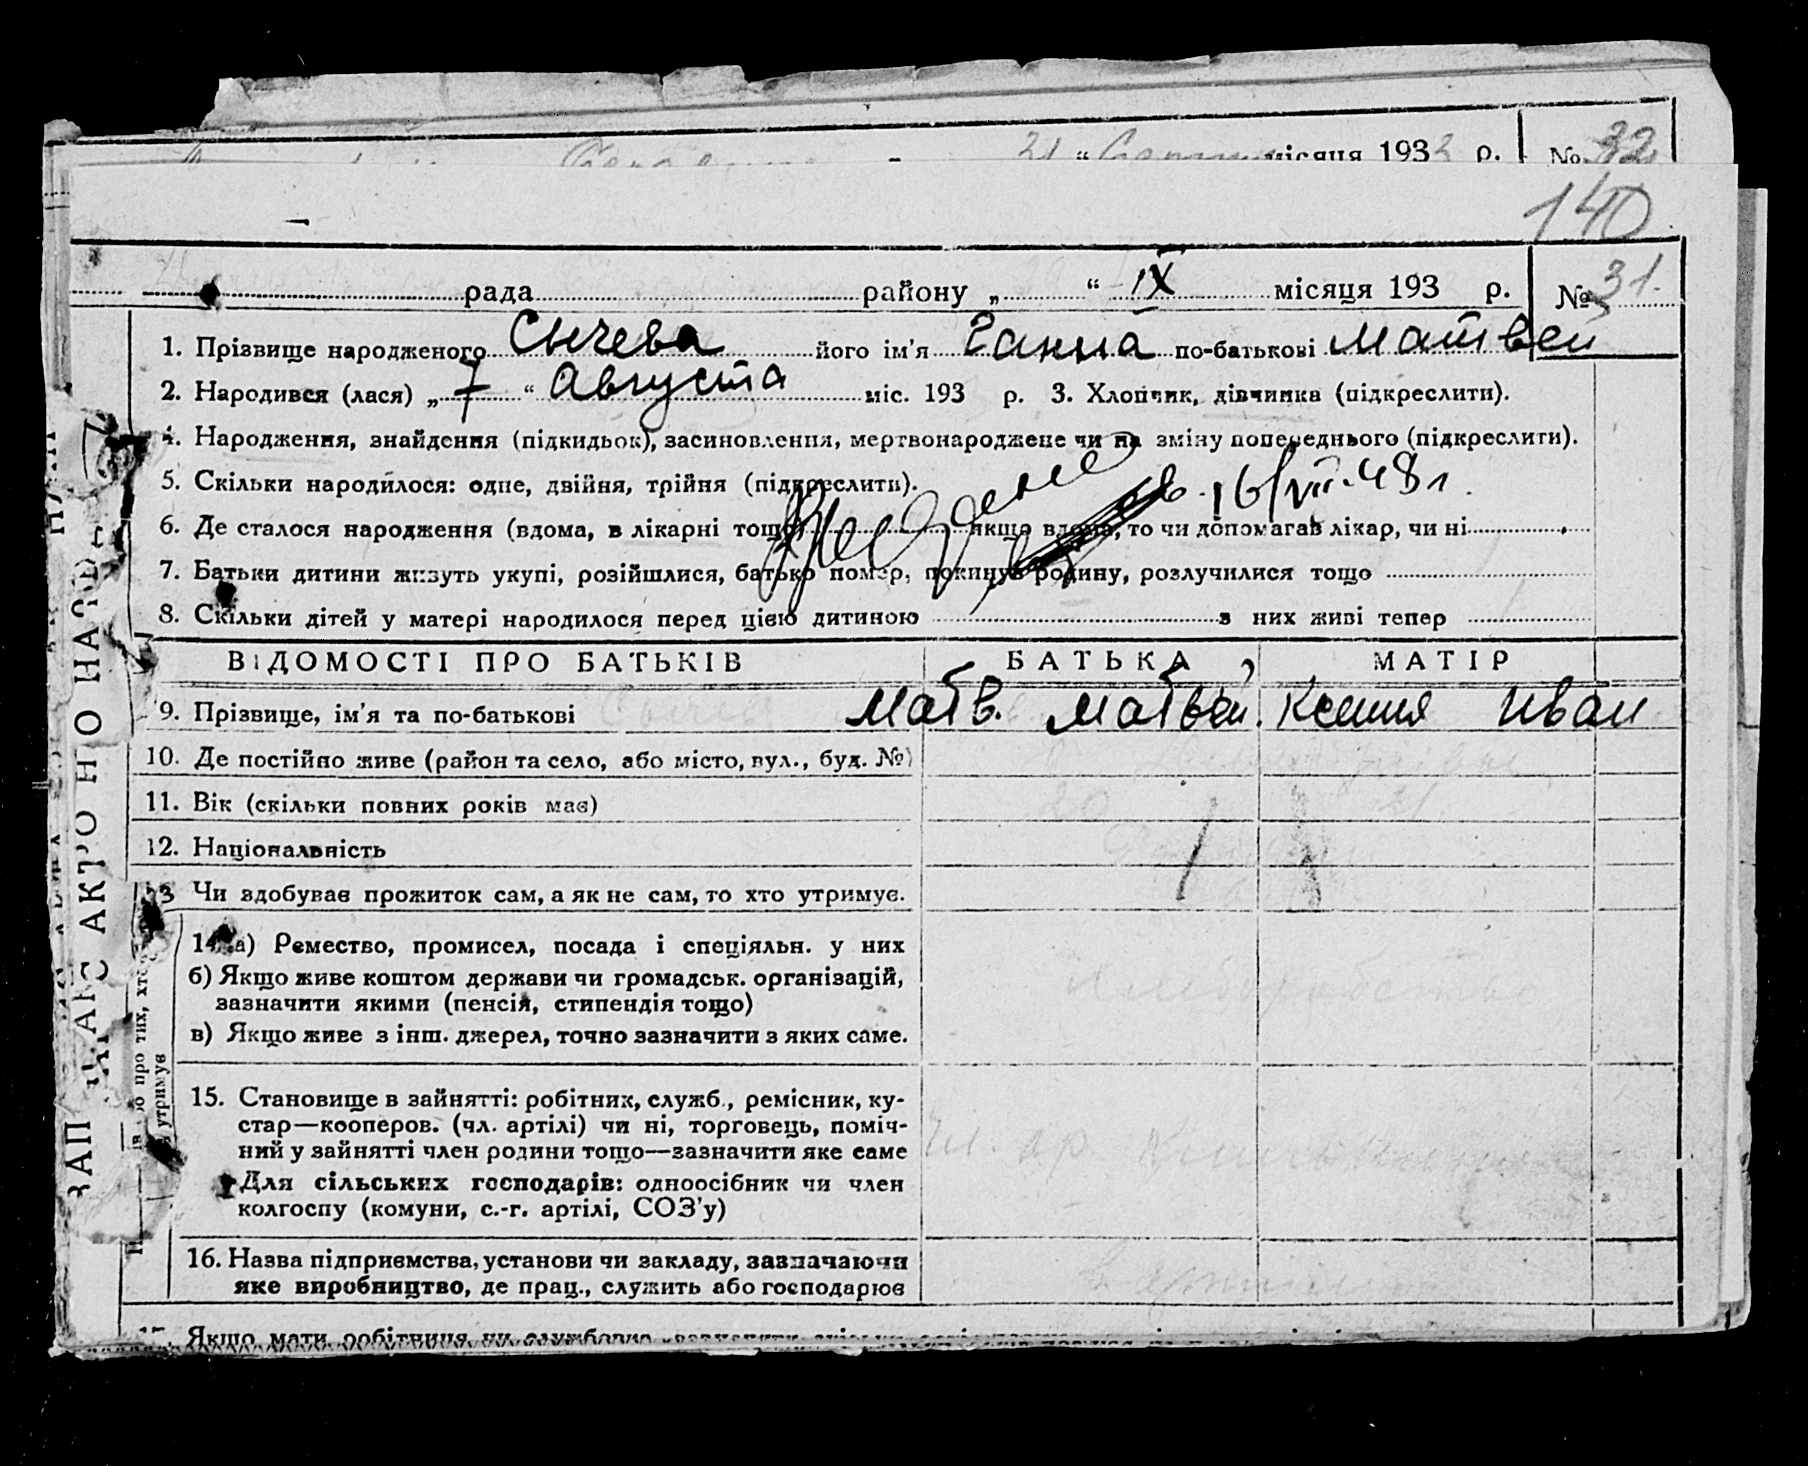 21 " місяця 193 р. № 32
140
рада району „ " IX місяця 193 р. № 31.
1. Прізвище народженого Сычева його ім'я Ганна по-батькові Матвеи
2. Народився (лася) „ 7 " Августа міс. 193 р. 3. Хлопчик, дівчинка (підкреслити).
4. Народження, знайдення (підкидьок), засиновлення, мертвонароджене чи на зміну попереднього (підкреслити).
5. Скільки народилося: одне, двійня, трійня (підкреслити).
16/VII-48 г
6. Де сталося народження (вдома, в лікарні тощо) якщо вдома, то чи допомагав лікар, чи ні
7. Батьки дитини живуть укупі, розійшлися, батько помер, покинув родину, розлучилися тощо
8. Скільки дітей у матері народилося перед цією дитиною з них живі тепер
ВІДОМОСТІ ПРО БАТЬКІВ БАТЬКА МАТІР
9. Прізвище, ім'я та по-батькові Матв. Матвеи. Ксения Иван
10. Де постійно живе (район та село, або місто, вул., буд. №)
11. Вік (скільки повних років має) 20 21
12. Національність
13 Чи здобуває прожиток сам, а як не сам, то хто утримує.
14. а) Ремество, промисел, посада і спеціяльн. у них
б) Якщо живе коштом держави чи громадськ. організацій,
зазначити якими (пенсія, стипендія тощо)
в) Якщо живе з інш. джерел, точно зазначити з яких саме.
15. Становище в зайнятті: робітник, служб., ремісник, ку-
стар—кооперов. (чл. артілі) чи ні, торговець, поміч-
ний у зайнятті член родини тощо—зазначити яке саме
Для сільських господарів: одноосібник чи член
колгоспу (комуни, с.-г. артілі, СОЗ'у)
16. Назва підприємства, установи чи закладу, зазначаючи
яке виробництво, де прац., служить або господарює
Якщо мати робітниця чи